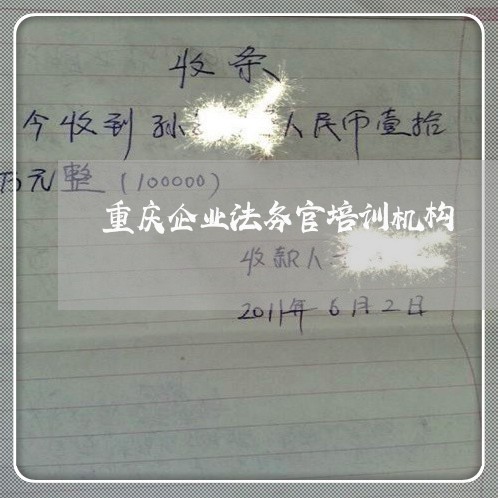 收条
今收到孙 人民币壹拾
万元整(100000)
重庆企业法务官培训机构
收款人
2011年6月2日